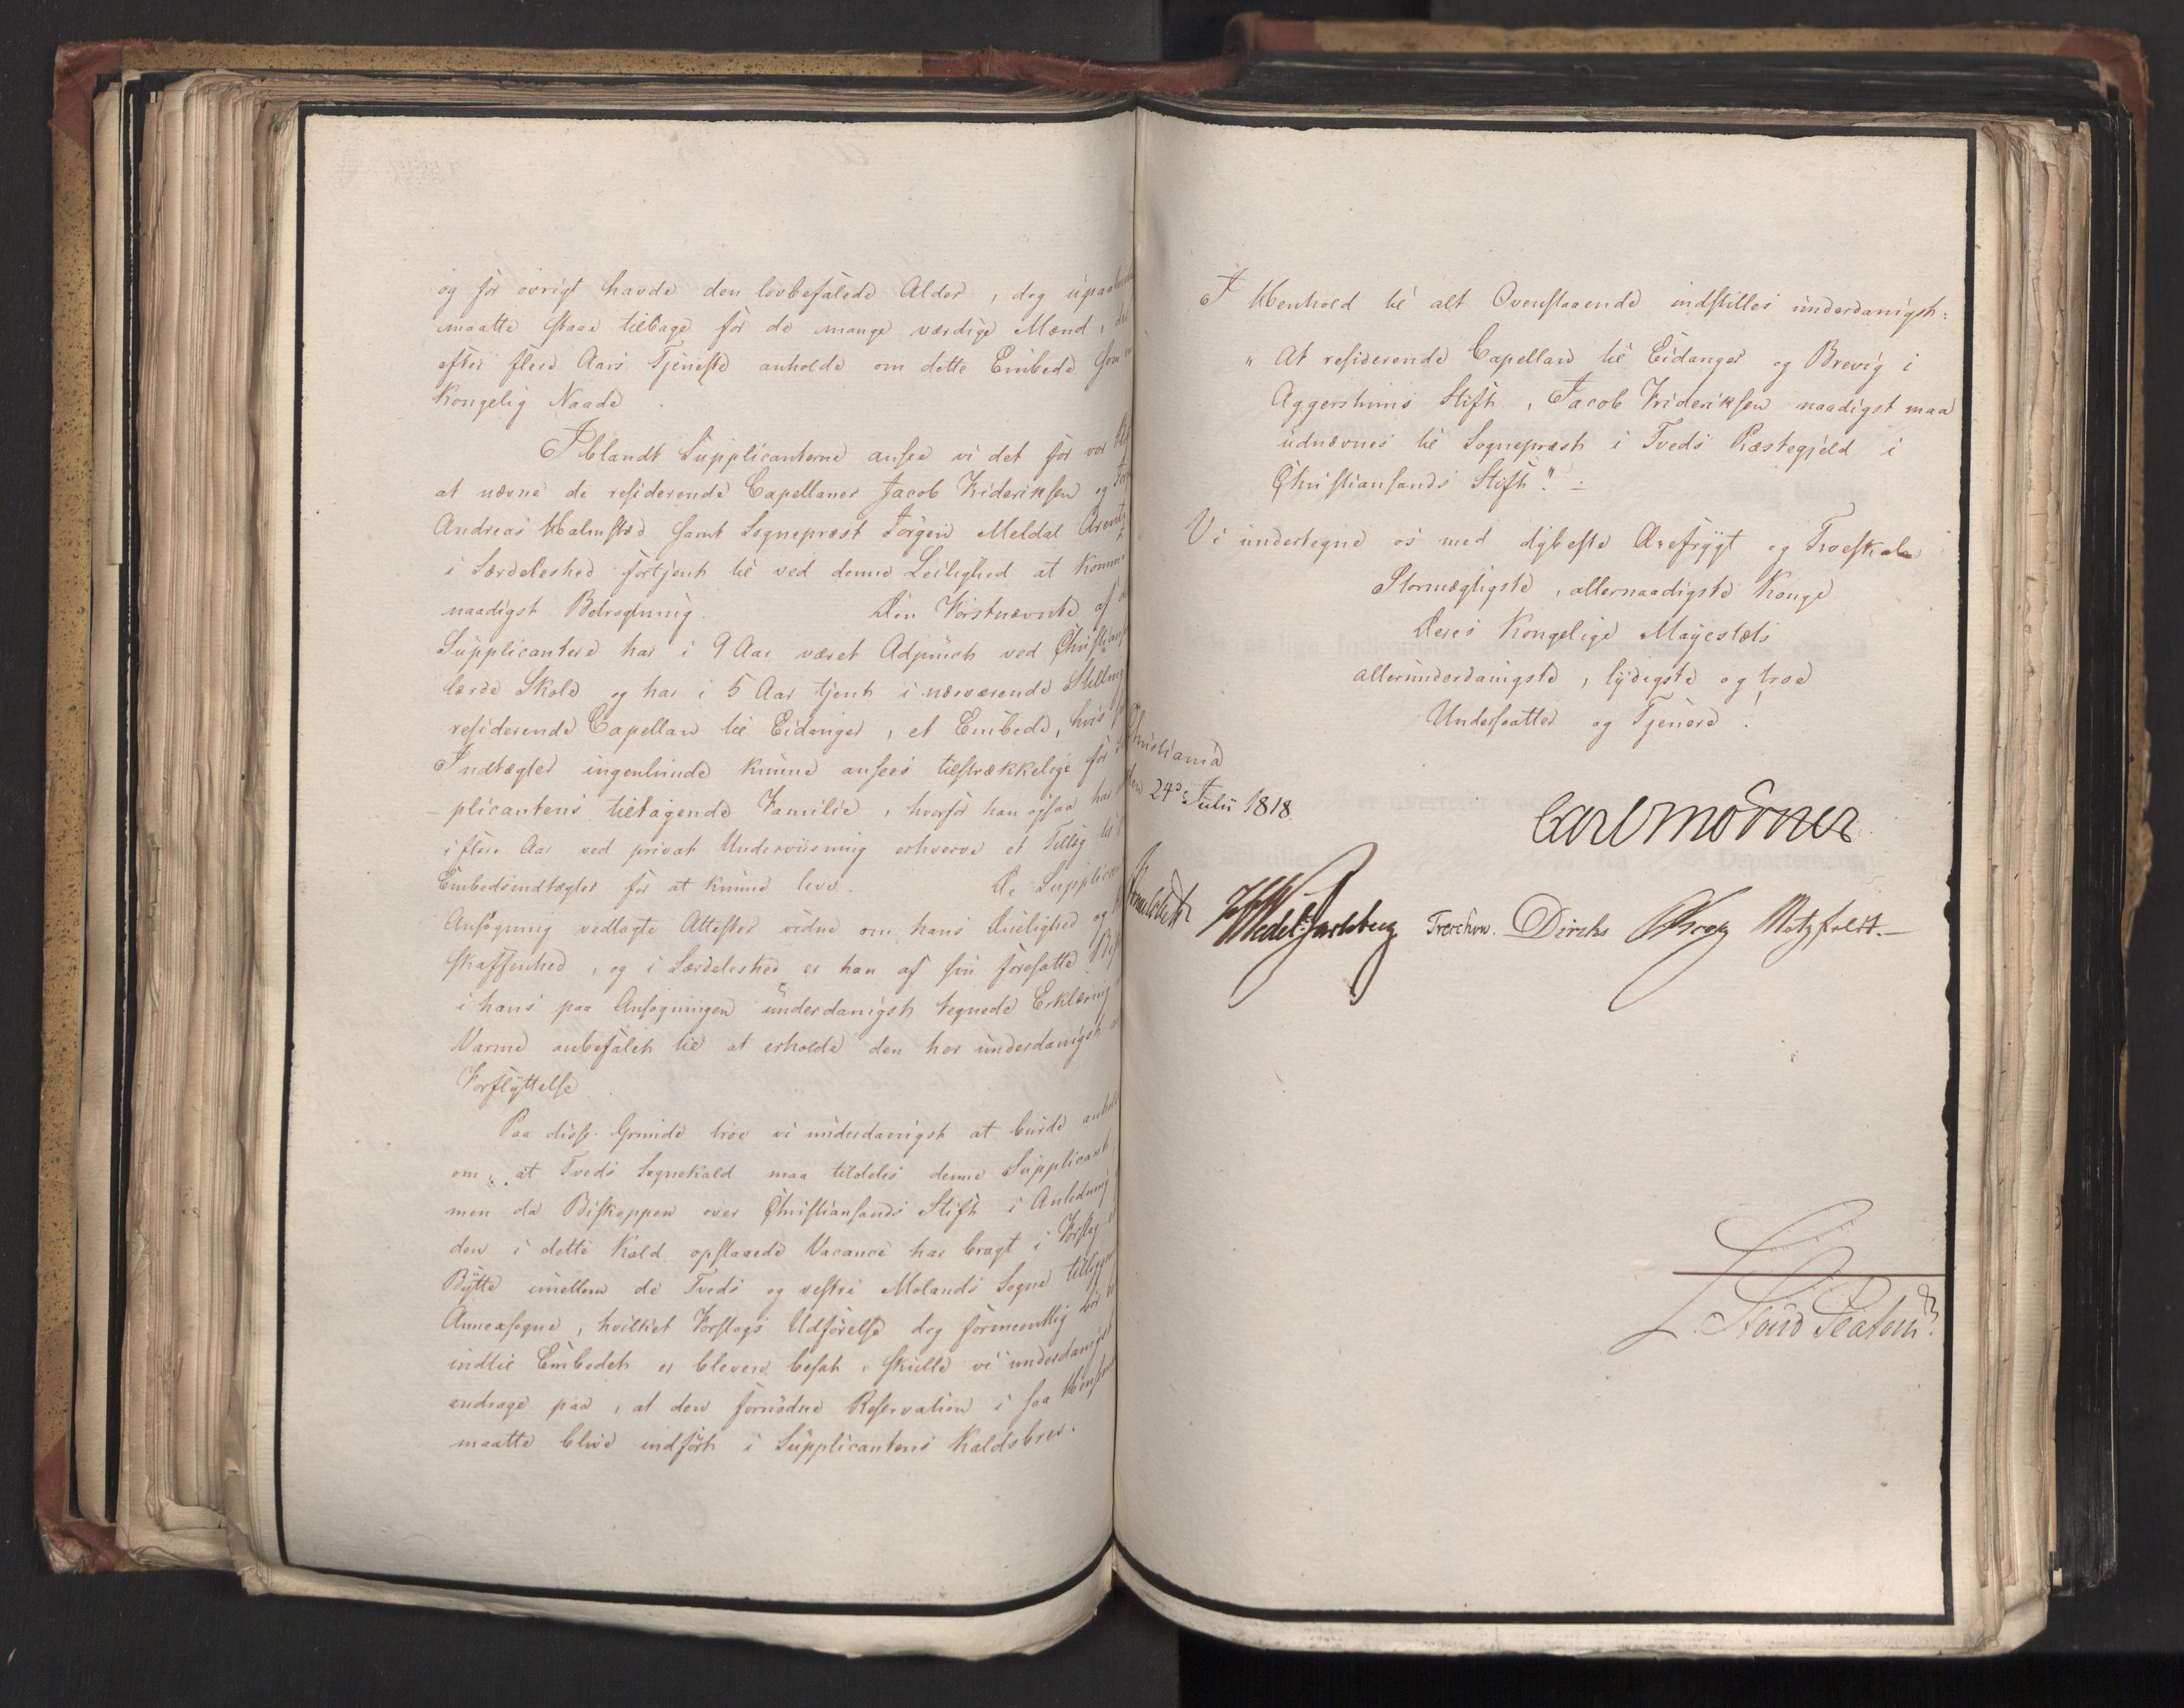 og for övrigt havde den lovbefalede Alder, dog
maatte staae tilbage for de mange værdige Mænd, der
efter flere Aars Tjeneste anholde om dette Embede som
Kongelig Naade.
Iblandt Supplicanterne ansee vi det for vor
at nævne de residerende Capellaner Jacob Frideriksen og
Andreas Halmsted samt Sognepræst Jörgen Meldal
i Særdeleshed fortjent til ved denne Leilighed at komme
naadigst Betragtning. Den Förstnævnte af
Supplicantere har i 9 Aar været Adjunct ved
lærde Skole og har i 5 Aar tjent i nærværende Stilling
residerende Capellan til Eidanger, et Embede, hvis
Indtægter ingenlunde kunne ansees tilstrækkelige for
plicantens tiltagende Familie, hvorfor han ogsaa har
i flere Aar ved privat Underviisning erhverve et Tillæg til
Embedsindtægter for at kunne leve. De
Ansögning vedlagte Attester vidne om hans Duelighed og
skaffenhed, og i Særdeleshed er han af sin foresatte
i hans paa Ansögningen underdanigst tegnede Erklæring
Varme anbefalet til at erholde den her underdanigst
Forflyttelse.
Paa disse Grunde troe vi underdanigst at burde anholde
om, at Tveds Sognekald maa tildeles denne Supplicant,
men da Biskoppen over Christiansands Stift i Anledning
den i dette Kald opstaaede Vacance har bragt i Forslag
Bytte imellem de Tveds og vestre Molands Sogne
Annexsogne, hvilket Forslags Udförelse dog formeentlig bör
indtil Embedet er bleven besat, skulle vi underdanigst
andrage paa, at den fornödne Reservation i saa Henseende
maatte blive indfört i Supplicantens Kaldsbrev.
I Henhold til alt Ovenstaaende indstilles underdanigst:
"At residerende Capellan til Eidanger og Brevig i
Aggershuus Stift, Jacob Frideriksen naadigst maa
udnævnes til Sognepræst i Tveds Præstegjeld i
Christiansands Stift."
Vi undertegne os med dybeste Ærefrygt og Troeskab
Stormægtigste, allernaadigste Konge
Deres Kongelige Majestæts
allerunderdanigste, lydigste og troe
Undersaatter og Tjenere!
Christiania
den 24de Julii 1818.
Carl Mörner
Wedel Jarlsberg Treschow. Diriks Krog Motzfeldt.